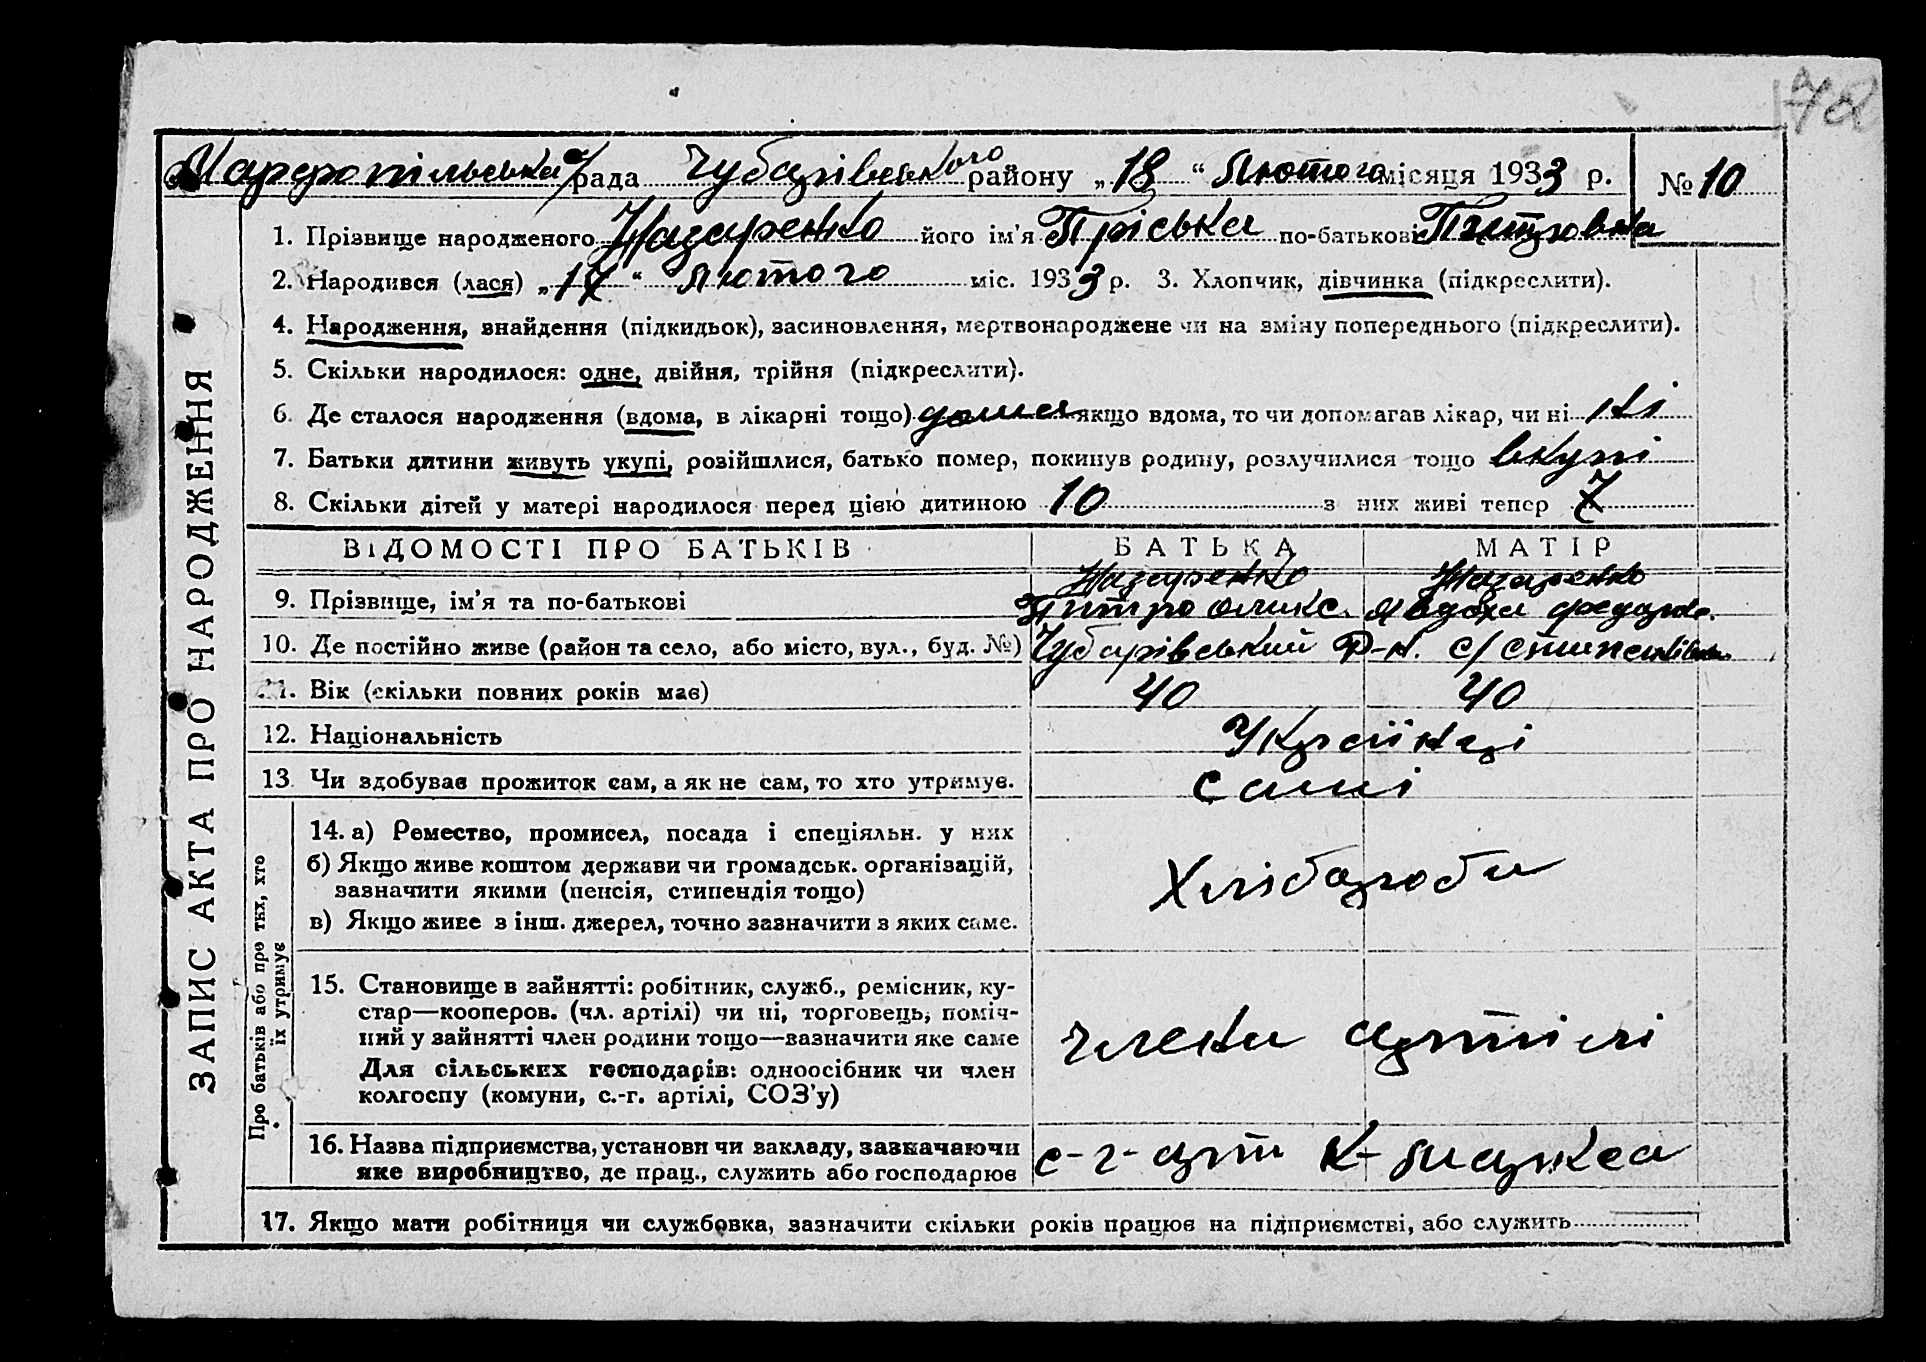 Марфопільська с/рада Чубарівського району „18“ Лютого місяця 1933 р. № 10
1. Прізвище народженого Назаренко його ім'я Пріська по-батькові Петровна
2. Народився (лася) „17“ лютого міс. 1933 р. 3. Хлопчик, дівчинка (підкреслити).
4. Народження, знайдення (підкидьок), засиновлення, мертвонароджене чи на зміну попереднього (підкреслити).
5. Скільки народилося: одне, двійня, трійня (підкреслити).
6. Де сталося народження (вдома, в лікарні тощо) дома якщо вдома, то чи допомагав лікар, чи ні ні
7. Батьки дитини живуть укупі, розійшлися, батько помер, покинув родину, розлучилися тощо вкупі
8. Скільки дітей у матері народилося перед цією дитиною 10 з них живі тепер 7
ВІДОМОСТІ ПРО БАТЬКІВ БАТЬКА МАТІР
Назаренко Назаренко
9. Прізвище, ім'я та по-батькові Питро Явдоха
10. Де постійно живе (район та село, або місто, вул., буд. №) Чубарівський Р-н. с/
11. Вік (скільки повних років має) 40 40
12. Національність Українці
13. Чи здобуває прожиток сам, а як не сам, то хто утримує. самі
14. а) Ремество, промисел, посада і спеціяльн. у них
б) Якщо живе коштом держави чи громадськ. організацій,
зазначити якими (пенсія, стипендія тощо)
Хлібароби
в) Якщо живе з інш. джерел, точно зазначити з яких саме.
15. Становище в зайнятті: робітник, служб., ремісник, ку-
стар—кооперов. (чл. артілі) чи ні, торговець, поміч-
ний у зайнятті член родини тощо—зазначити яке саме
члени артілі
Для сільських господарів: одноосібник чи член
колгоспу (комуни, с.-г. артілі, СОЗ'у)
16. Назва підприємства, установи чи закладу, зазначаючи
яке виробництво, де прац., служить або господарює с-г-арт К-Маркса
17. Якщо мати робітниця чи службовка, зазначити скільки років працює на підприємстві, або служить
ЗАПИС АКТА ПРО НАРОДЖЕННЯ
Про батьків або про тих, хто
їх утримує